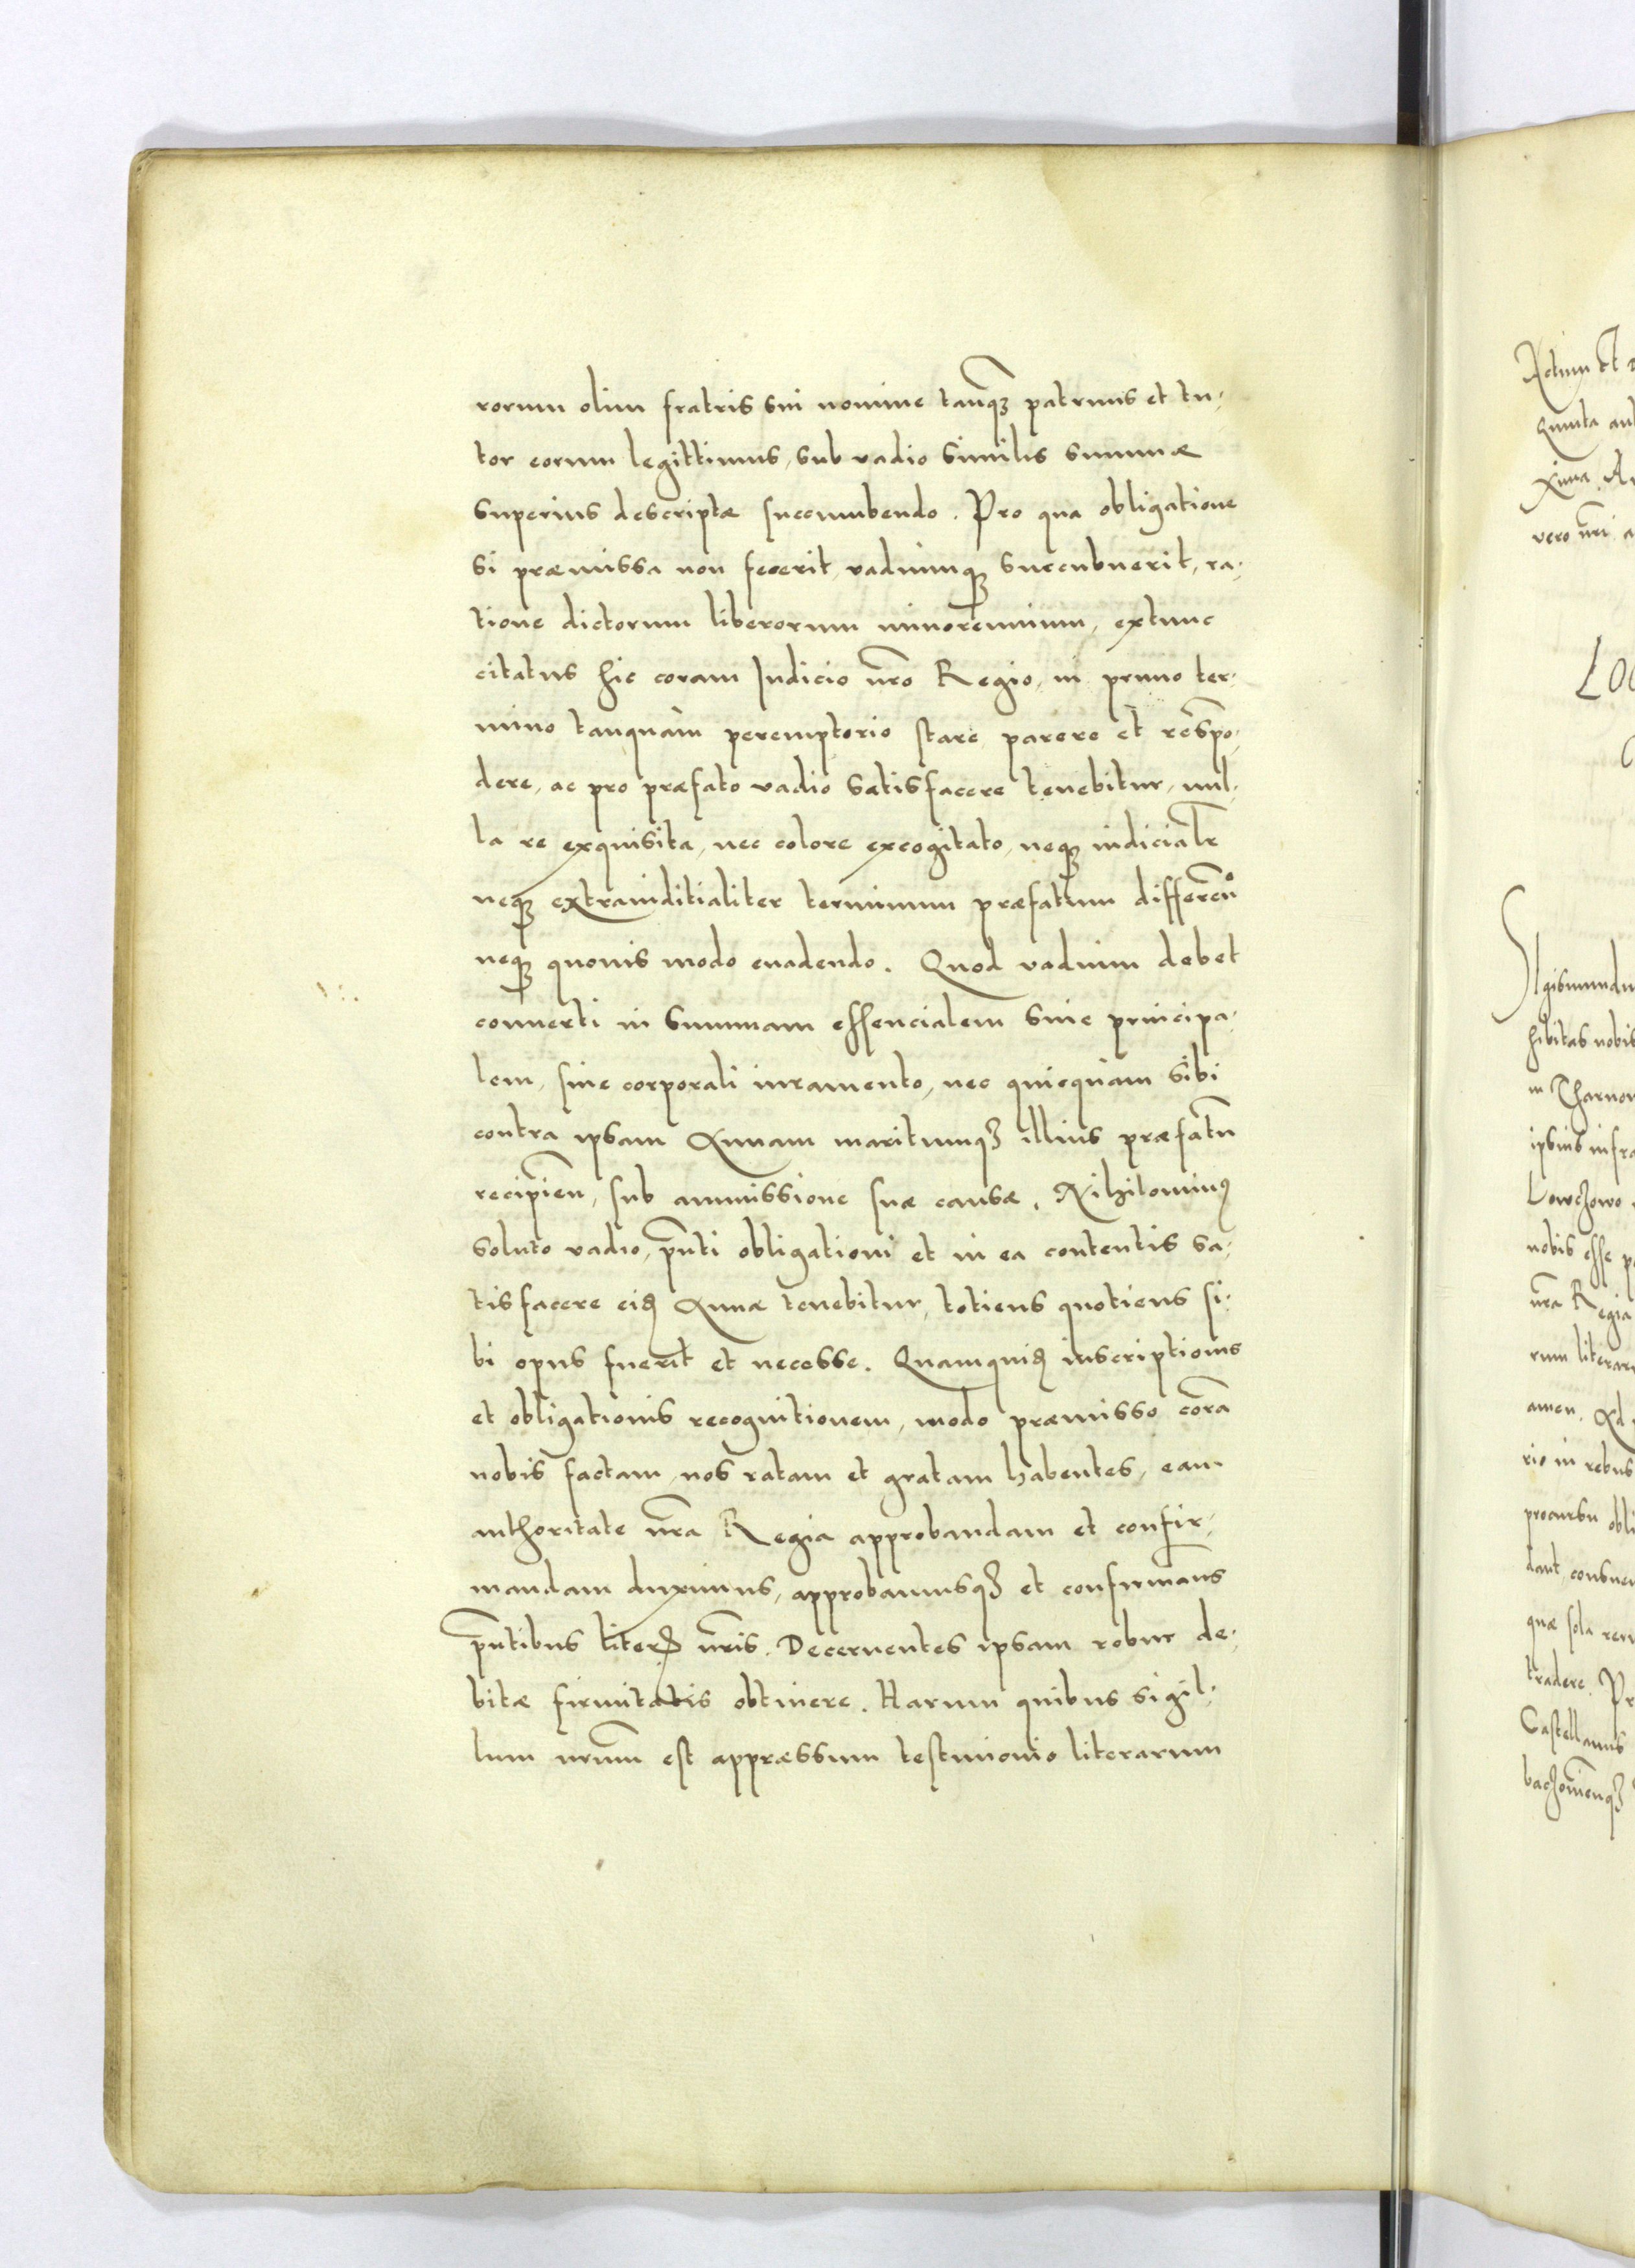 rorum olim fratris sui nomine tanq̃ȝ patruus et tu-
tor eorum legittimus, sub vadio similis summæ
superius descriptæ succumbendo. Pro qua obligatione
si præmissa non fecerit, vadiumqȝ succubuerit, ra-
tione dictorum liberorum minorennium, extunc
citatus hic coram Iudicio nr̃o Regio, in primo ter-
mino tanquàm peremptorio stare parere et respõ-
dere, ac pro præfato vadio satisfacere tenebitur, nul-
la re exquisita, nec colore excogitato, neqȝ iudicialr̃
neqȝ extraiuditialiter terminum præfatum differenᵒ
neqȝ quouis modo euadendo. Quod vadium debet
conuerti in summam essencialem siue principa-
lem, sine corporali iuramento, nec quicquàm sibi
contra ipsam Annam maritumqȝ illius præfatũ
recipieñ, sub ammissione suæ causæ. Nihilominꝰ
soluto vadio, pñti obligationi et in ea contentis sa-
tisfacere eidꝫ Annæ tenebitur, totiens quotiens si-
bi opus fuerit et necesse. Quamquidꝫ inscriptionis
et obligationis recognitionem, modo præmisso corã
nobis factam, nos ratam et gratam habentes, eam
authoritate nr̃a Regia approbandam et confir-
mandam duximus, approbamusqȝ et confirmam̃s
pñtibus literꝭ nr̃is. Decernentes ipsam robur de-
bitæ firmitatis obtinere. Harum quibus sigil-
lum nrum̃ est appræssum testimonio literarum
Actum et
Quinta
xima
vero nr̃i
LOC
Sigismundu
hibitas nobis
in Tharnow
ipsius infra
Lowczowo
nobis esse
nr̃a Regia
rum literar
amen. Ad
rio in rebus
obli
dant, consue
quæ sola
tradere. Pr
Castellanus